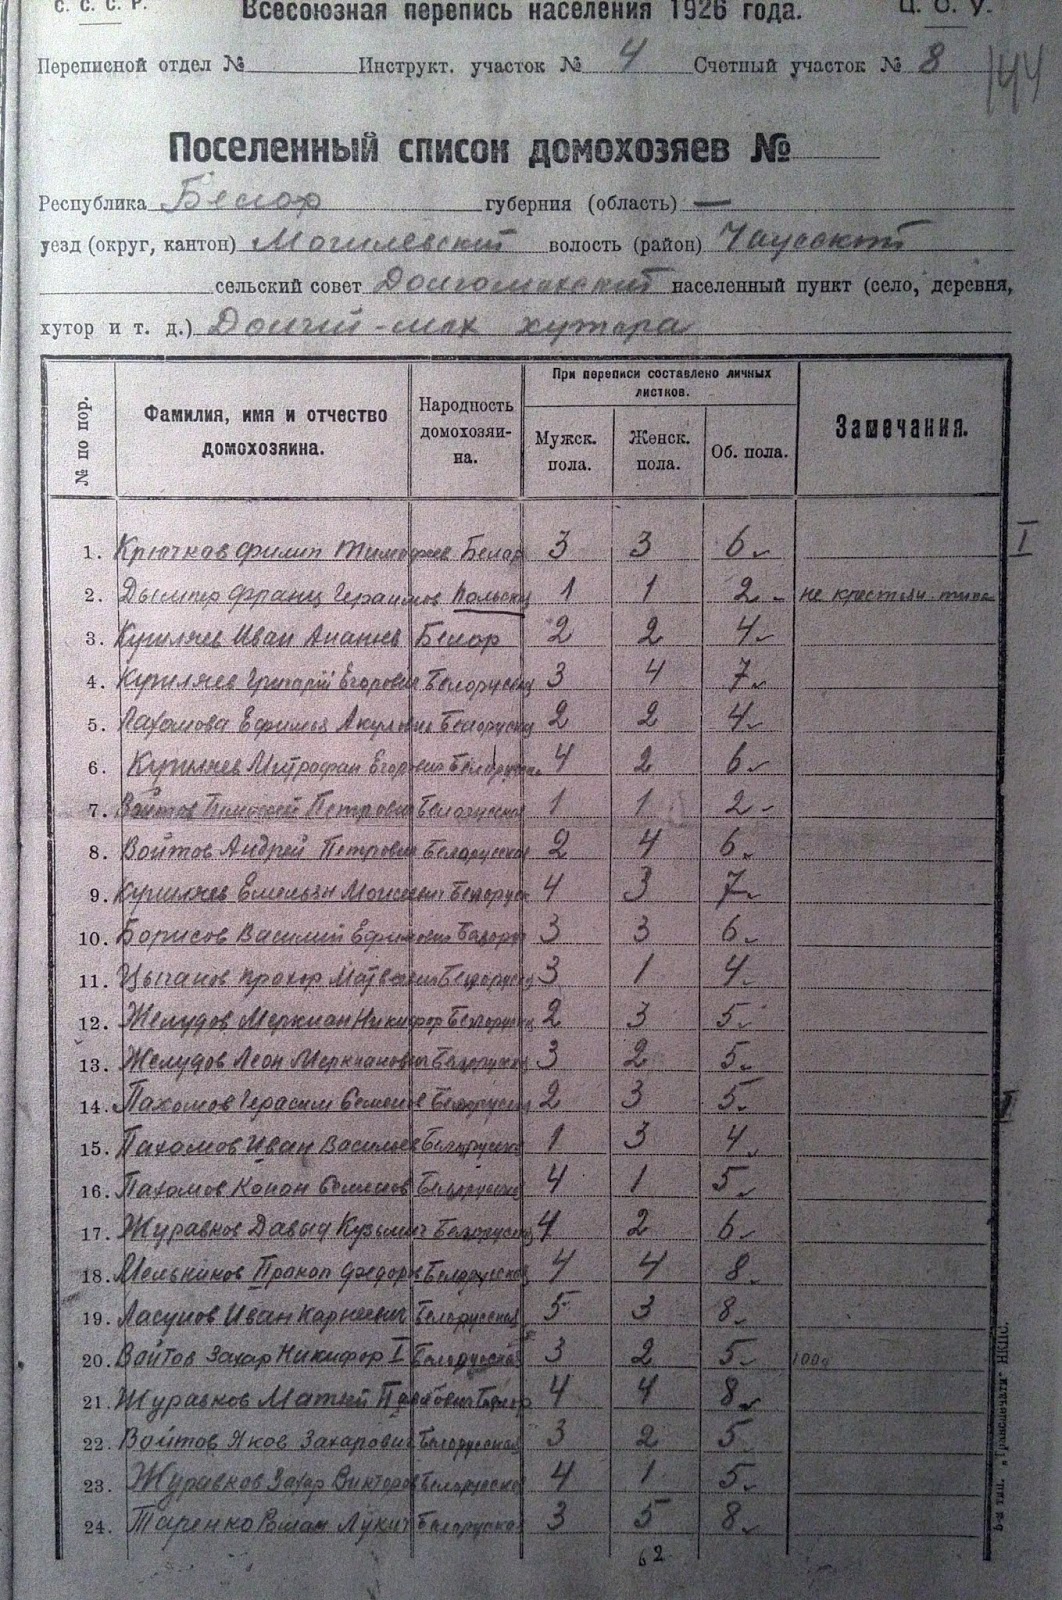 С. С. С. Р.
Всесоюзная перепись населения 1926 года.
Ц. С. У.
Переписной отдел № Инструкт. участок № 4 Счетный участок № 8
144
Поселенный список домохозяев №
Республика Белор губерния (область) —
уезд (округ, кантон) Могилевский волость (район) Чаусский
сельский совет Долгомохский населенный пункт (село, деревня,
хутор и т. д.) Долгий-мох хутора
№ по пор.
Фамилия, имя и отчество домохозяина.
Народность домохозяи-на.
При переписи составлено личных листков.
Мужск. пола.
Женск. пола.
Об. пола.
Замечания.
1. Крючков Филип Тимофеев Белор 3 3 6
I
2. Франц Герасимов Польская 1 1 2 не
3. Иван Ананьев Белор 2 2 4
4. Григорий Егорович Белорусская 3 4 7
5. Пахомова Ефимья Белорусская 2 2 4
6. Митрофан Егорович Белорусская 4 2 6
7. Войтов Петрович Белорусская 1 1 2
8. Войтов Андрей Петрович Белорусская 2 4 6
9. Емельян Моисеевич Белорусск 4 3 7
10. Борисов Василий Ефимович Белорус 3 3 6
11. Цыганов Прохор Матвеевич Белорусск 3 1 4
12. Желудов Меркиан Никифор Белорусска 2 3 5
13. Желудов Леон Меркианович Белорусская 3 2 5
14. Пахомов Герасим Семенов Белорусская 2 3 5
15. Пахомов Иван Васильев Белорусская 1 3 4
16. Пахомов Конон Семенов Белорусская 4 1 5
17. Журавков Давыд Кузьмич Белорусская 4 2 6
18. Мельников Прокоп Федоров Белорусская 4 4 8
19. Ласунов Иван Карнеевич Белорусская 5 3 8
20. Войтов Захар Никифор I Белорусская 3 2 5
21. Журавков Матвей Белор 4 4 8
22. Войтов Яков Захарович Белорусская 3 2 5
23. Журавков Захар Викторов Белорусская 4 1 5
24. Таренко Роман Лукич Белорусская 3 5 8
62
5-я тип. „Транспечати“ НКПС.